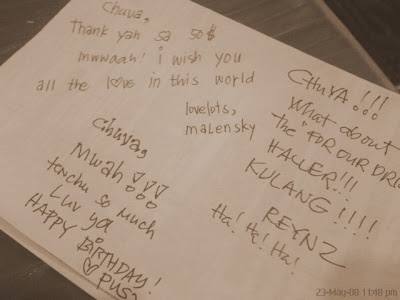 Chuva,
Thank yah sa 50$
mwwaah! i wish you
all the love in this world
lovelots,
malensky
Chuva,
Mwah!!!
tenchu so much
Luv ya
HAPPY BIRTHDAY!
CHUYA!!!
What about
the "FOR OUR
HALLER!!!
KULANG!!!!
REYNZ
Ha! Ha! Ha!
23-May-08 11:48 pm